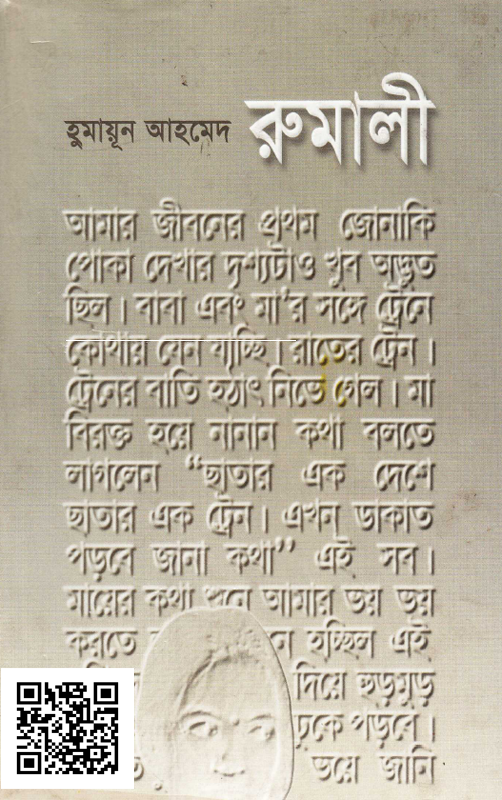 হুমায়ূন আহমেদ রুমালী
আমার জীবনের প্রথম জোনাকি
পোকা দেখার দৃশ্যটাও খুব অদ্ভুত
ছিল। বাবা এবং মা'র সঙ্গে ট্রেনে
কোথায় যেন যাচ্ছি। রাতের ট্রেন।
ট্রেনের বাতি হঠাৎ নিভে গেল। মা
বিরক্ত হয়ে নানান কথা বলতে
লাগলেন “ছাতার এক দেশে
ছাতার এক ট্রেন। এখন ডাকাত
পড়বে জানা কথা” এই সব।
মায়ের কথা শুনে আমার ভয় ভয়
করতে হচ্ছিল এই
দিয়ে হুড়মুড়
ঢুকে পড়বে।
ভয়ে জানি